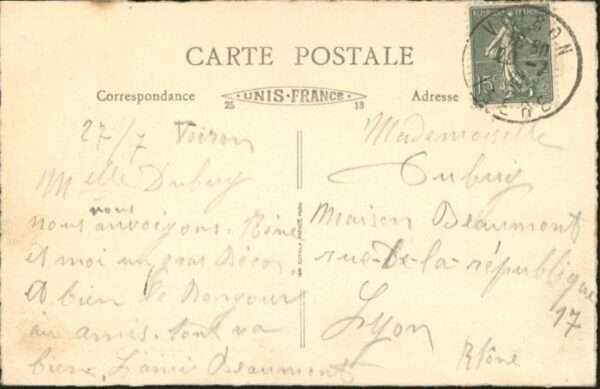 CARTE POSTALE
Correspondance
UNIS-FRANCE
25 13
Adresse
15
27/7 Voiron
Melle Dubuy
nous
nous envoyons. Réné
et moi un gros
et bien le Bonjour
aux amis. tout va
bien. L'amie Beaumont
Mademoiselle
Dubuy
Maison Beaumont
rue-de-la-république
17
Lyon
Rhône